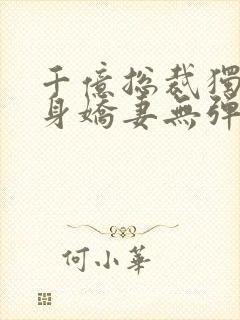 千億總裁獨
身嬌妻無彈
何小華